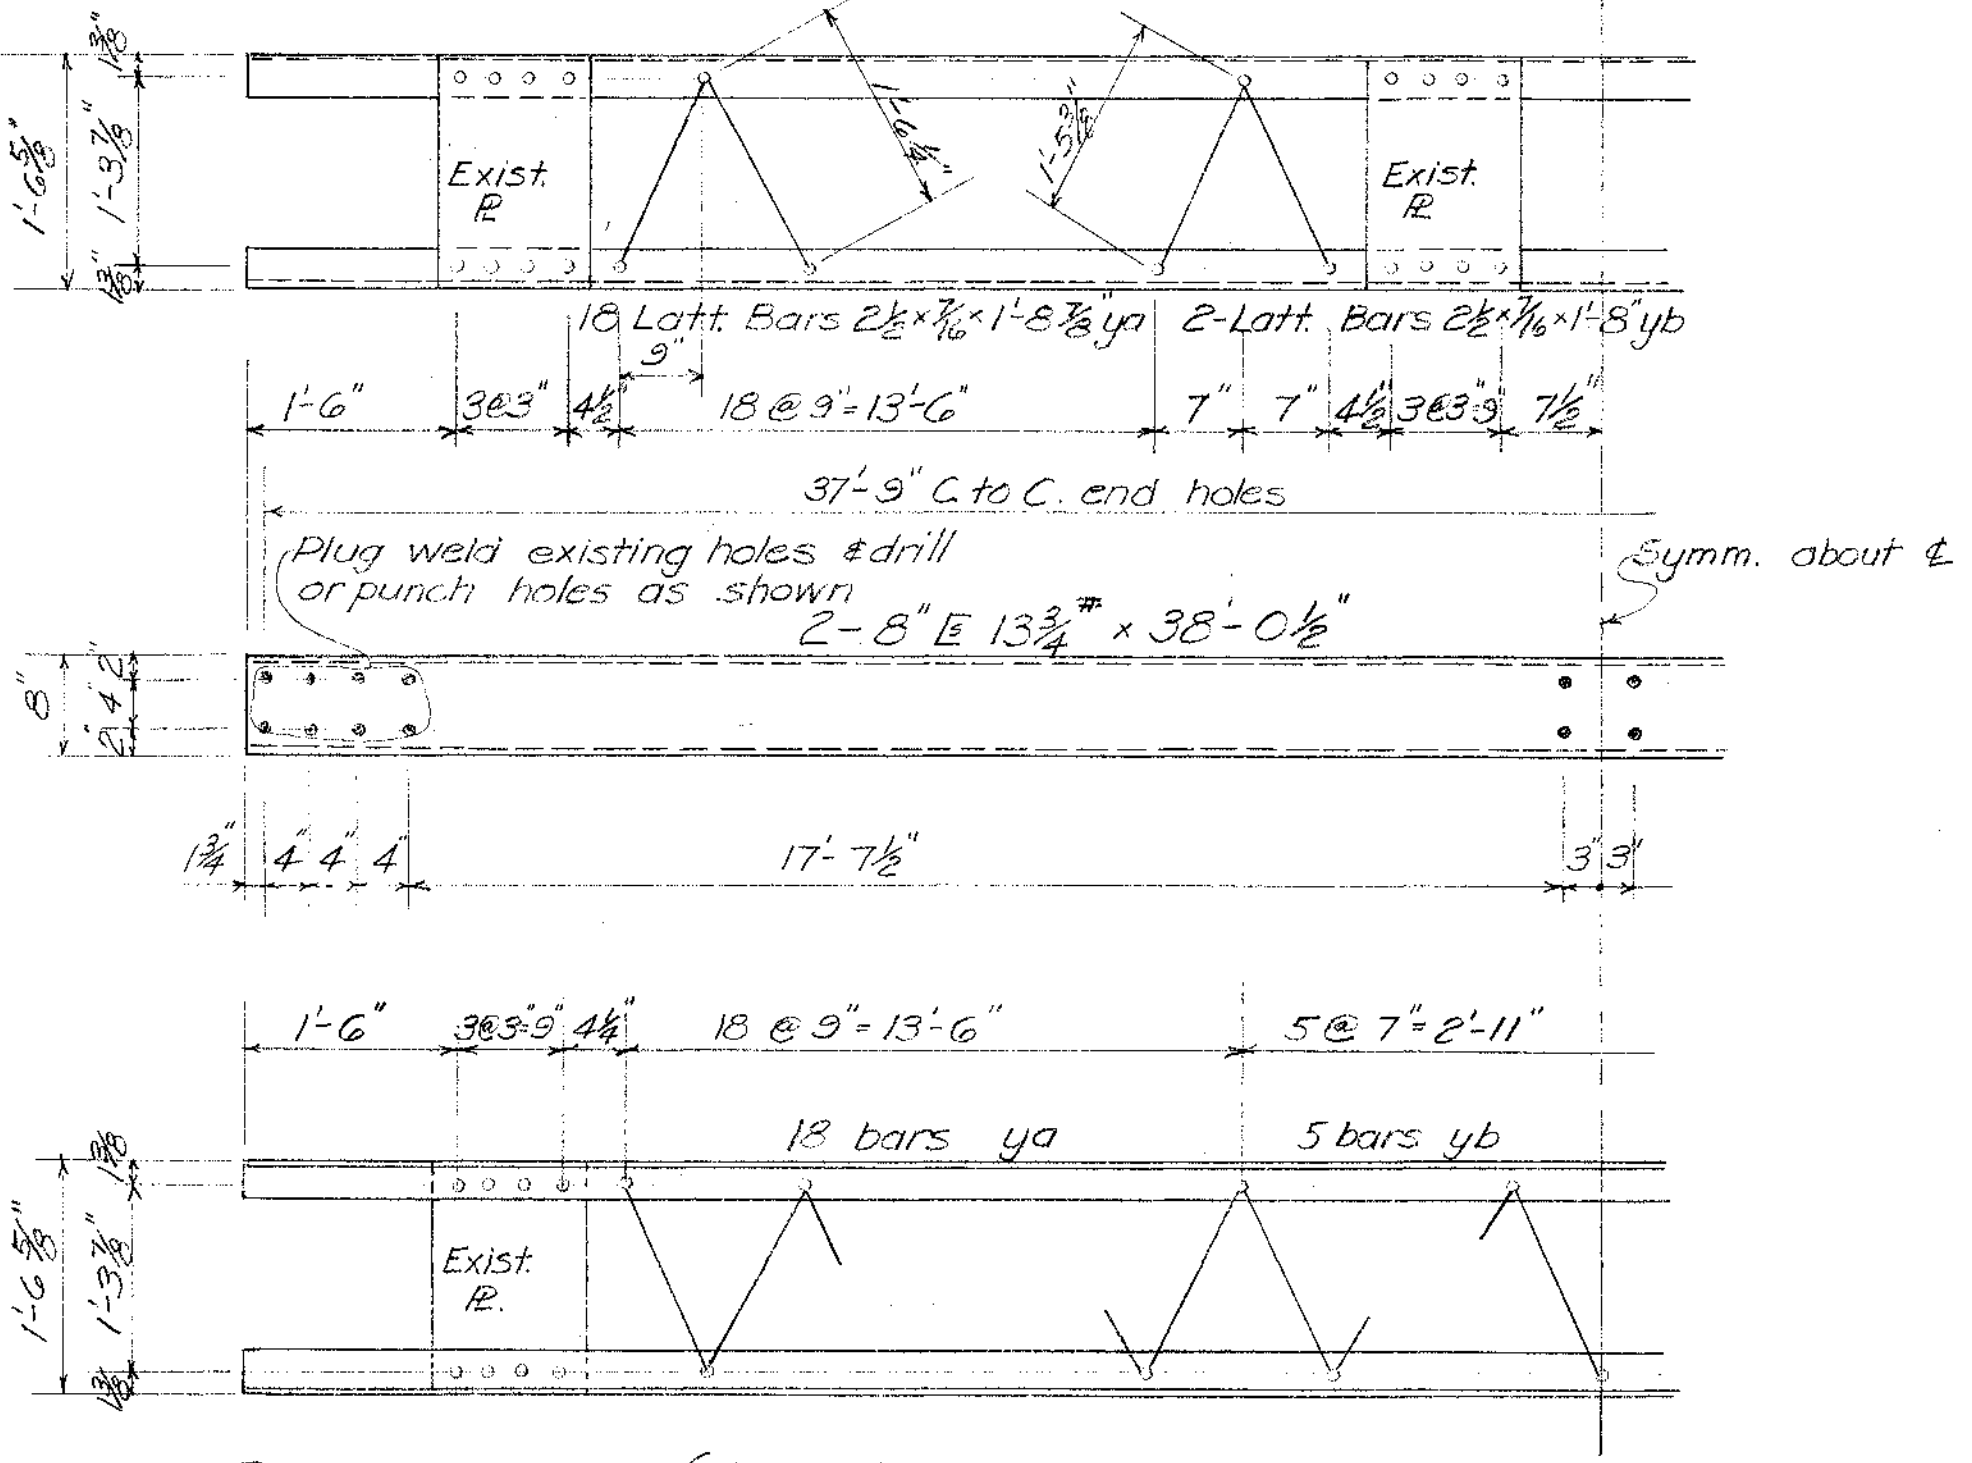 1 3/8"
1'-3 7/8"
1'-6 5/8"
1 3/8"
Exist.
PL
1'-6 1/4"
1'-5 3/8"
Exist.
PL
18 Latt. Bars 2 1/2 × 7/16 × 1'-8 7/8" ya
2-Latt. Bars 2 1/2 × 7/16 × 1'-8" yb
9"
1'-6" 3@3" 4 1/2" 18 @ 9" = 13'-6" 7" 7" 4 1/2" 3@3=9" 7 1/2"
37'-9" C. to C. end holes
Plug weld existing holes & drill
or punch holes as shown
Symm. about ℄
2-8" [s 13 3/4# × 38'-0 1/2"
8"
2"
4"
2"
1 3/4" 4" 4" 4" 17'-7 1/2" 3" 3"
1'-6" 3@3"=9" 4 1/4" 18 @ 9" = 13'-6" 5 @ 7" = 2'-11"
18 bars ya 5 bars yb
1 3/8
1'-3 7/8"
1'-6 5/8"
1 3/8
Exist.
PL.